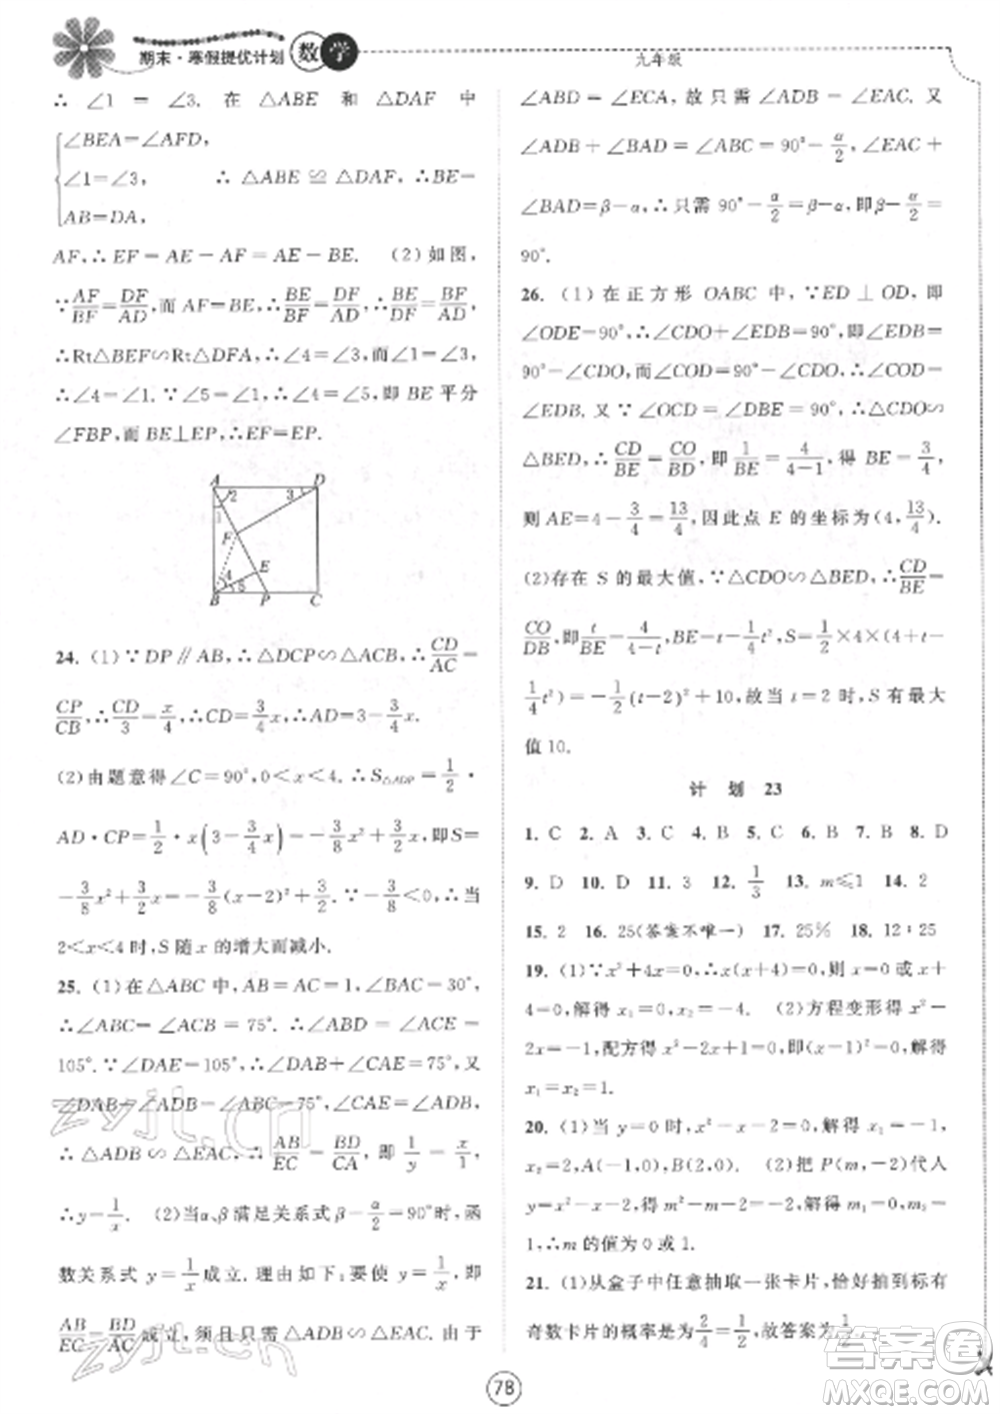 期末·寒假提优计划 数学
九年级
∴ ∠1 = ∠3. 在 △ABE 和 △DAF 中
∠BEA=∠AFD,
∠1=∠3, ∴ △ABE ≌ △DAF. ∴BE=
AB=DA,
AF,∴ EF = AF - AE = AE - BE. (2) 如图,
∵AF/BF=DF/AD,而 AF=BE,∴BE/BF=DF/AD,∴BE/DF=BF/AD,
∴Rt△BEF∽Rt△DFA,∴∠4=∠3,而∠1=∠3,
∴∠4=∠1.∵∠5=∠1,∴∠4=∠5,即 BE 平分
∠FBP,而 BE⊥EP,∴EF=EP.
A 2 3 D
1
F
4 E
5
B P C
24. (1)∵DP∥AB,∴△DCP∽△ACB,∴CD/AC=
CP/CB,∴CD/3=x/4,∴CD=3/4x,∴AD=3-3/4x.
(2)由题意得∠C=90°,0<x<4.∴S△ADP=1/2·
AD·CP=1/2·x(3-3/4x)=-3/8x²+3/2x,即S=
-3/8x²+3/2x=-3/8(x-2)²+3/2.∵-3/8<0,∴当
2<x<4时,S 随 x 的增大而减小.
25. (1)在△ABC中,AB=AC=1,∠BAC=30°,
∴∠ABC=∠ACB=75°.∴∠ABD=∠ACE=
105°.∵∠DAE=105°,∴∠DAB+∠CAE=75°,又
∠DAB+∠ADB=∠ABC=75°,∴∠CAE=∠ADB,
∴△ADB∽△EAC,∴AB/EC=BD/CA,即1/y=x/1,
∴y=1/x. (2)当α、β满足关系式β-α/2=90°时,函
数关系式 y=1/x成立.理由如下:要使 y=1/x,即
AB/EC=BD/AC成立,须且只需△ADB∽△EAC.由于
∠ABD=∠ECA,故只需∠ADB=∠EAC.又
∠ADB+∠BAD=∠ABC=90°-α/2,∠EAC+
∠BAD=β-α,∴只需90°-α/2=β-α,即β-α/2=
90°.
26. (1)在正方形 OABC 中,∵ED⊥OD,即
∠ODE=90°,∴∠CDO+∠EDB=90°,即∠EDB=
90°-∠CDO,而∠COD=90°-∠CDO,∴∠COD=
∠EDB.又∵∠OCD=∠DBE=90°,∴△CDO∽
△BED,∴CD/BE=CO/BD,即1/BE=4/(4-1),得 BE=3/4,
则 AE=4-3/4=13/4,因此点 E 的坐标为(4,13/4).
(2)存在 S 的最大值,∵△CDO∽△BED,∴CD/BE=
CO/DB,即t/BE=4/(4-t),BE=t-1/4t²,S=1/2×4×(4+t-
1/4t²)=-1/2(t-2)²+10,故当 t=2 时,S 有最大
值 10.
计 划 23
1. C 2. A 3. C 4. B 5. C 6. B 7. B 8. D
9. D 10. D 11. 3 12. 1/3 13. m≤1 14. 2
15. 2 16. 25(答案不唯一) 17. 25% 18. 12∶25
19. (1)∵x²+4x=0,∴x(x+4)=0,即 x=0 或 x+
4=0,解得 x₁=0,x₂=-4. (2)方程变形得 x²-
2x=-1,配方得 x²-2x+1=0,即(x-1)²=0,解得
x₁=x₂=1.
20. (1)当 y=0 时,x²-x-2=0,解得 x₁=-1,
x₂=2,A(-1,0),B(2,0). (2)把 P(m,-2)代入
y=x²-x-2=-2,解得 m₁=0,m₂=1
∴m 的值为 0 或 1.
21. (1)从盒子中任意抽取一张卡片,恰好抽到标有
奇数卡片的概率是为2/4=1/2,故答案为1/2.
78
zyjl.cn
答案圈
MXQE.COM